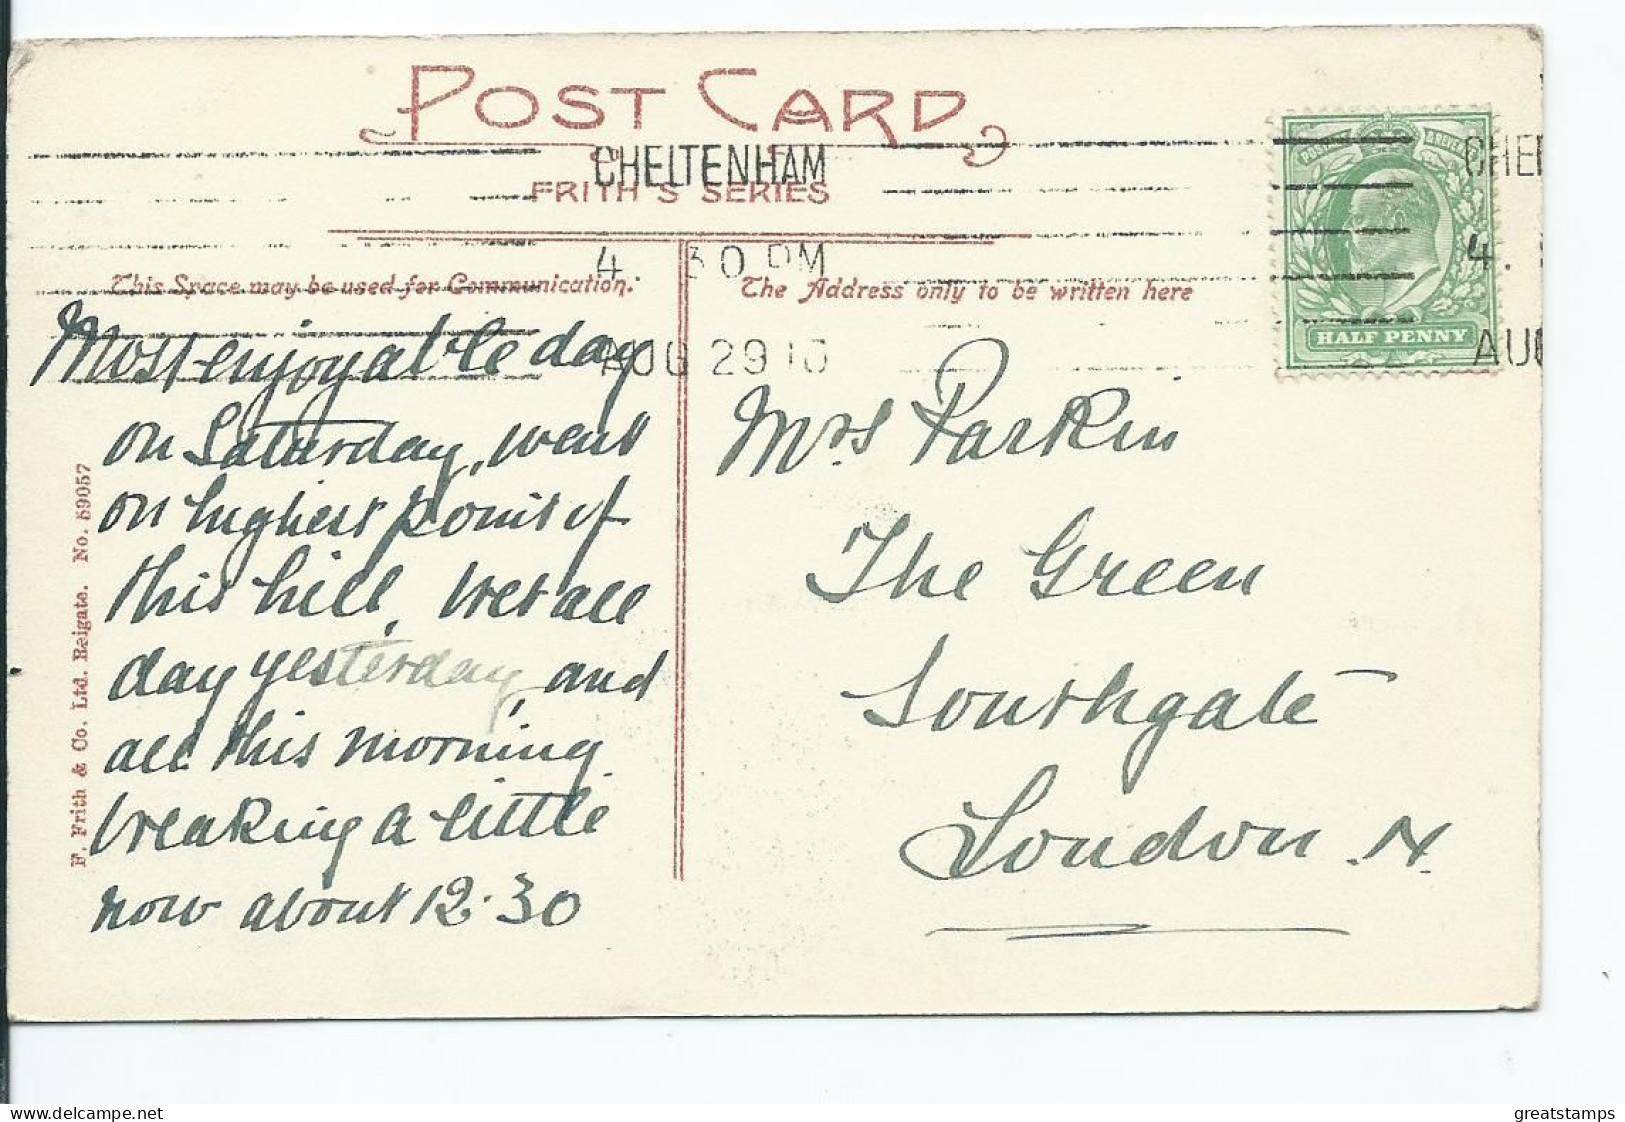 POST CARD
CHELTENHAM
FRITH'S SERIES
4. 30 PM
AUG 29 10
CHE
4.
AUG
POSTAGE REVENUE
HALF PENNY
This Space may be used for Communication.
The Address only to be written here
Most enjoyable day
on Saturday, went
on highest point of
this hill. Wet all
day yesterday, and
all this morning.
breaking a little
now about 12.30
Mrs Parkin
The Green
Southgate
London. N.
F. Frith & Co. Ltd. Reigate. No. 59057
delcampe.net
greatstamps